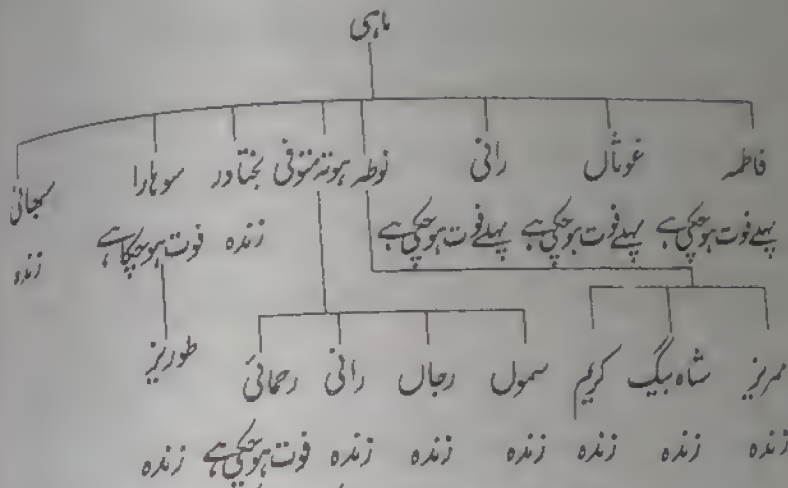 ماہی
فاطمہ غوثاں رانی نوطہ ہوتہ متوفی بختاور سوہارا سبحانی
پہلے فوت ہوچکی ہے پہلے فوت ہوچکی ہے پہلے فوت ہوچکی ہے زندہ فوت ہوچکا ہے زندہ
مہریز شاہ بیگ کریم سمول رجاں رانی رحمانی طوریز
زندہ زندہ زندہ زندہ زندہ زندہ فوت ہوچکی ہے زندہ